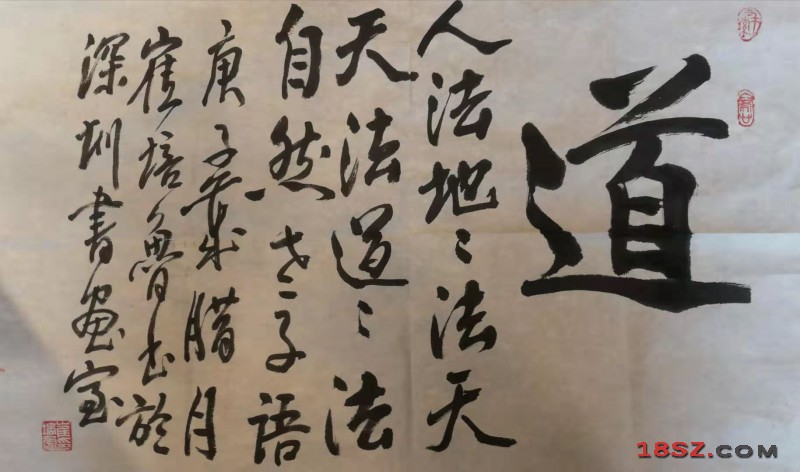 道
人法地〻法天
天法道〻法
自然老子语
庚子歲腊月
崔培魯书於
深圳書画室
18SZ.COM